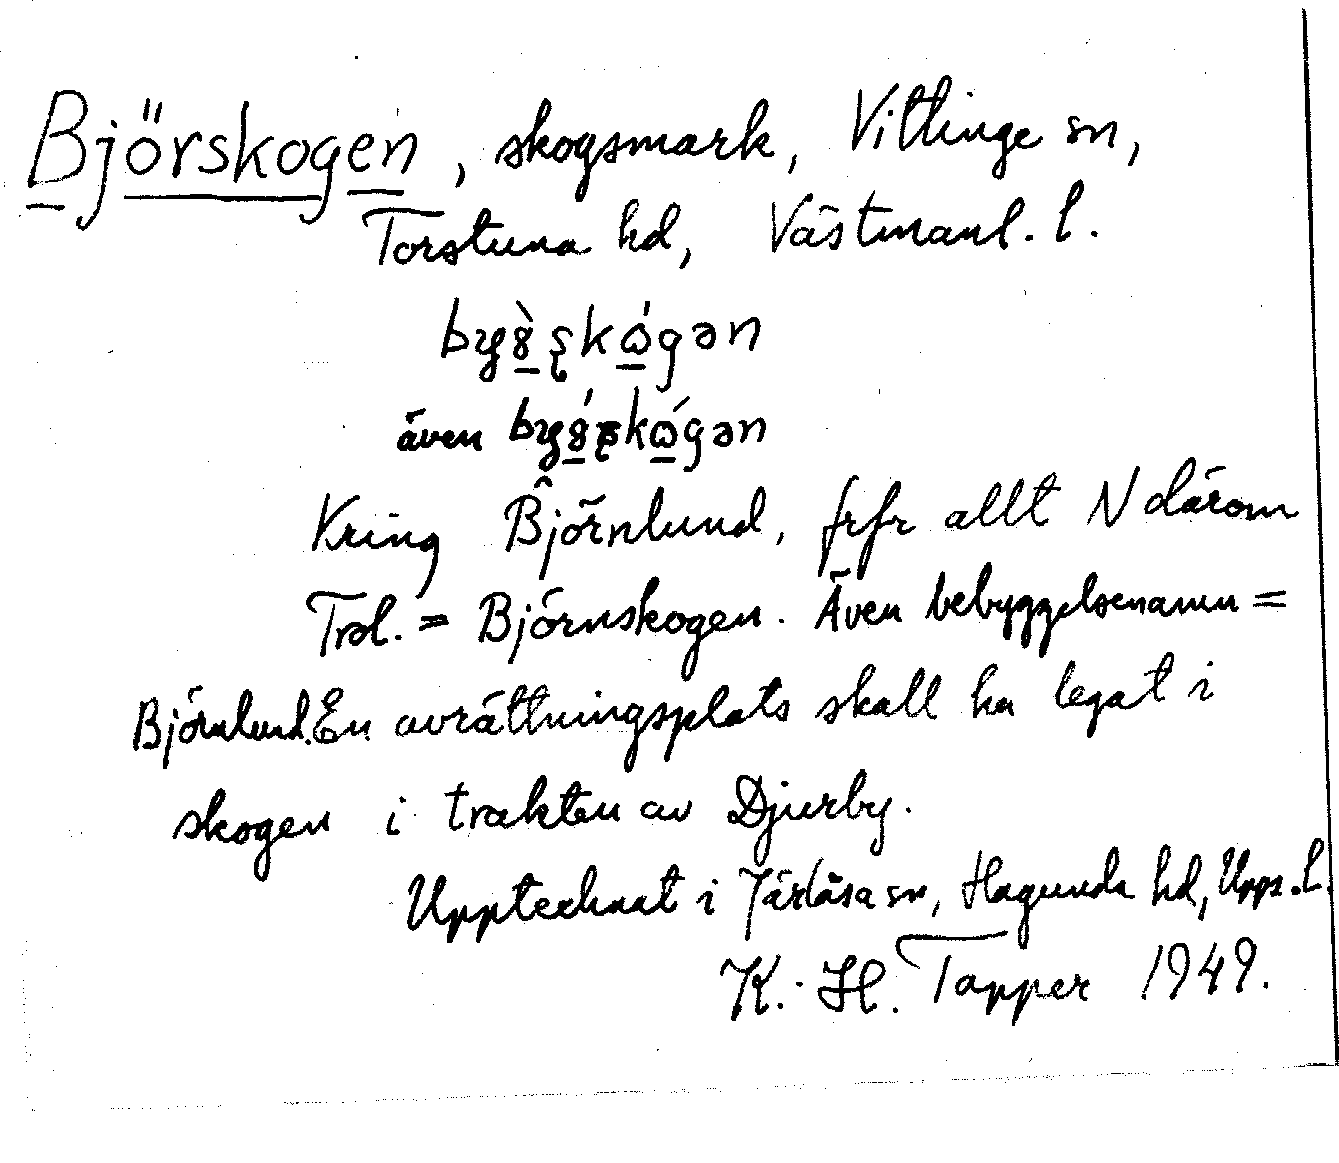 Björskogen, skogsmark, Vittinge sn,
Torstuna hd, Västmanl. l.
även
Kring Björnlund, frfr allt N därom
Trol. = Björnskogen. Även bebyggelsenamn =
Björnlund. En avrättningsplats skall ha legat i
skogen i trakten av Djurby.
Upptecknat i Järlåsa sn, Hagunda hd, Upps. l.
K.-H. Tapper 1949.